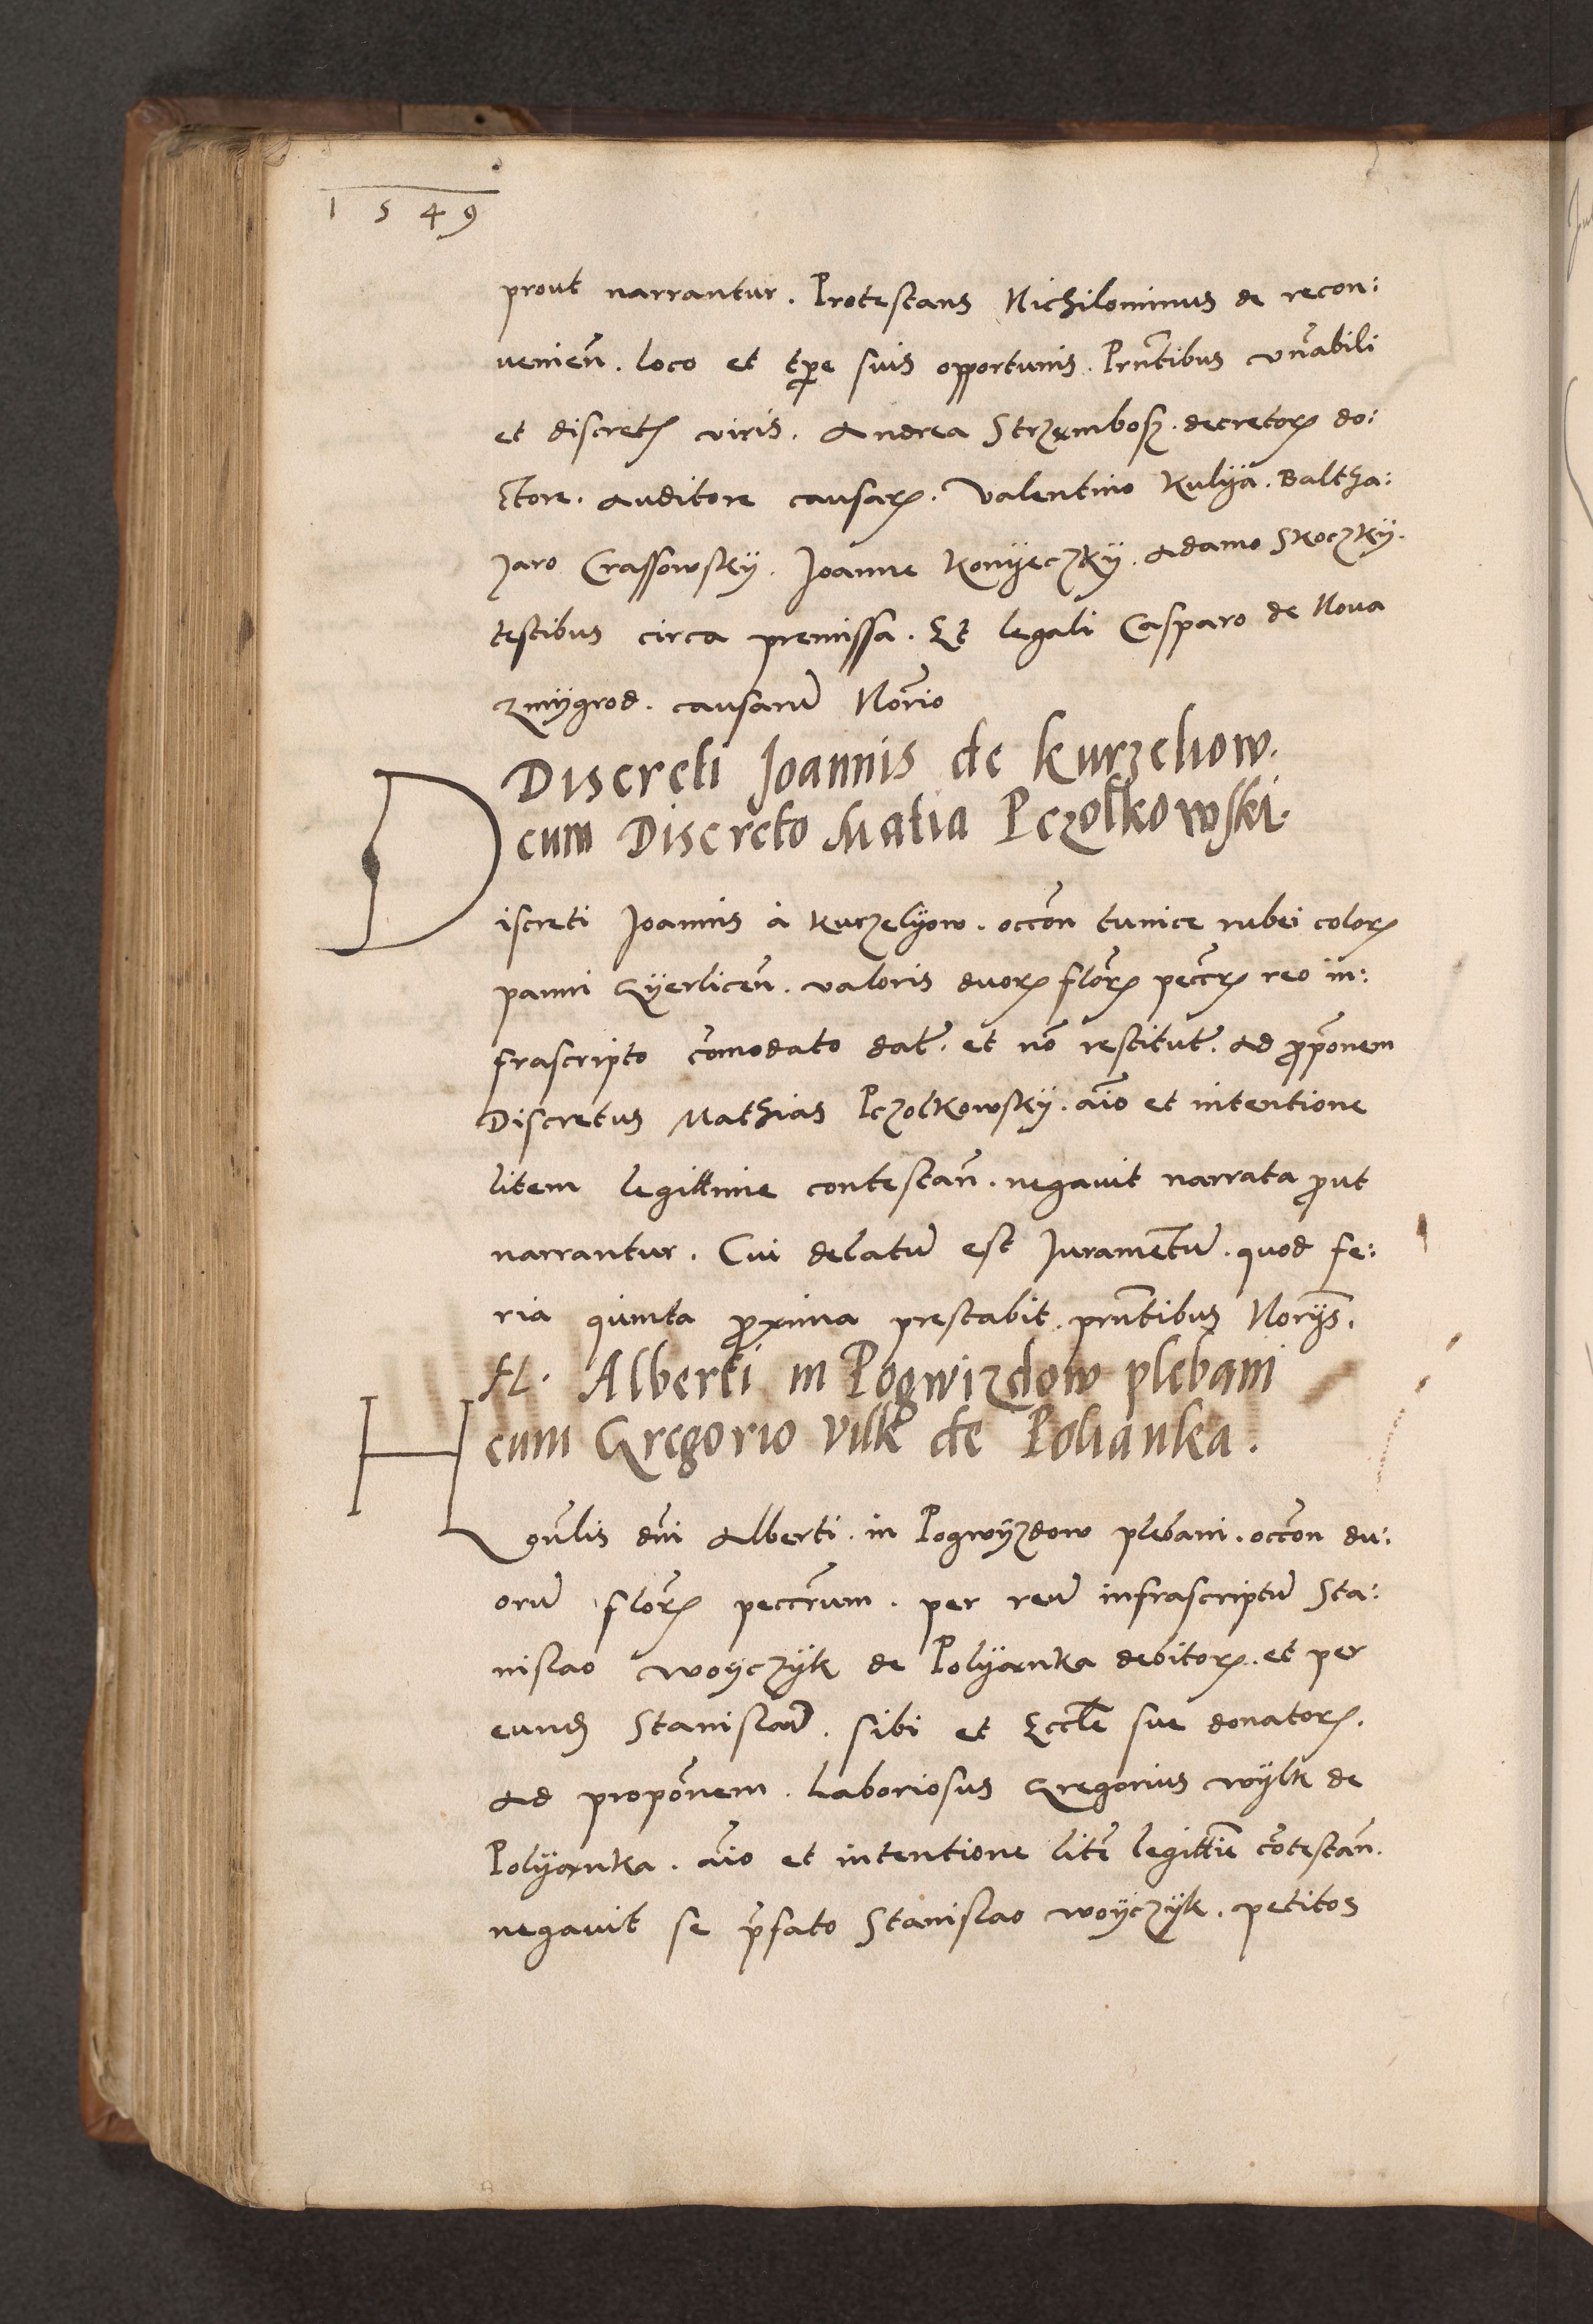 1549
prout narrantur. Protestans Nichilominus de recon:
venień. loco et tpe suis opportunis. Prntibus vnabili
et discretꝭ viris. Andrea Strzembosz. decretoꝝ do:
ctore. Auditore causaꝝ. Valentino Kulya. Baltha:
zaro Crassowsky. Joanne Konyeczky. Adamo Skoczky.
testibus circa premissa. Et legali Casparo de Nova
zmygrod. causarū Norio
Discreti Joannis de Kurzeliow.
cum Discreto Matia Pczolkowski.
Discreti Joannis à Kurzelyow. occon tunice rubei coloꝝ
panni Gyerliceń. valoris duoꝝ floꝝ peccꝝ reo in:
frascripto cōmodato dat. et nō restitut. Ad ꝓponem
Discretus Mathias Pczolkowsky. aīo et intentione
litem legittime contestań. negavit narrata ꝓut
narrantur. Cui delatū est Juramentū. quod fe:
ria quinta ꝓxima prestabit. prntibus Norijs.
H. Alberti in Pogwizdow plebani
cum Gregorio Vilk de Polianka.
Honlis dni Alberti. in Pogwyzdow plebani. occon du:
orū floꝝ peccrum. per reū infrascriptū Sta:
nislao woyczyk de Polyanka debitoꝝ. et per
eundꝫ Stanislaū. sibi et Eccle sue donatoꝝ.
Ad proponem. Laboriosus Gregorius wylk de
Polyanka. aīo et intentione litē legittīe cōtestań.
negavit se pfato Stanislao woyczyk. petitos